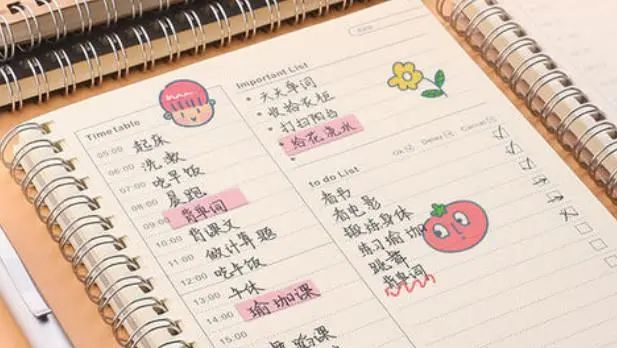 Timetable
05:00 起床
06:00 洗漱
07:00 吃早饭
08:00 晨跑
09:00 背单词
10:00 背课文
11:00 做计算题
12:00 吃午饭
13:00 午休
14:00 瑜珈课
15:00
Important List
天天单词
收拾衣柜
打扫阳台
给花浇水
Ok Delay Cancel
to do List
看书
看电影
锻炼身体
练习瑜珈
跳舞
背单词